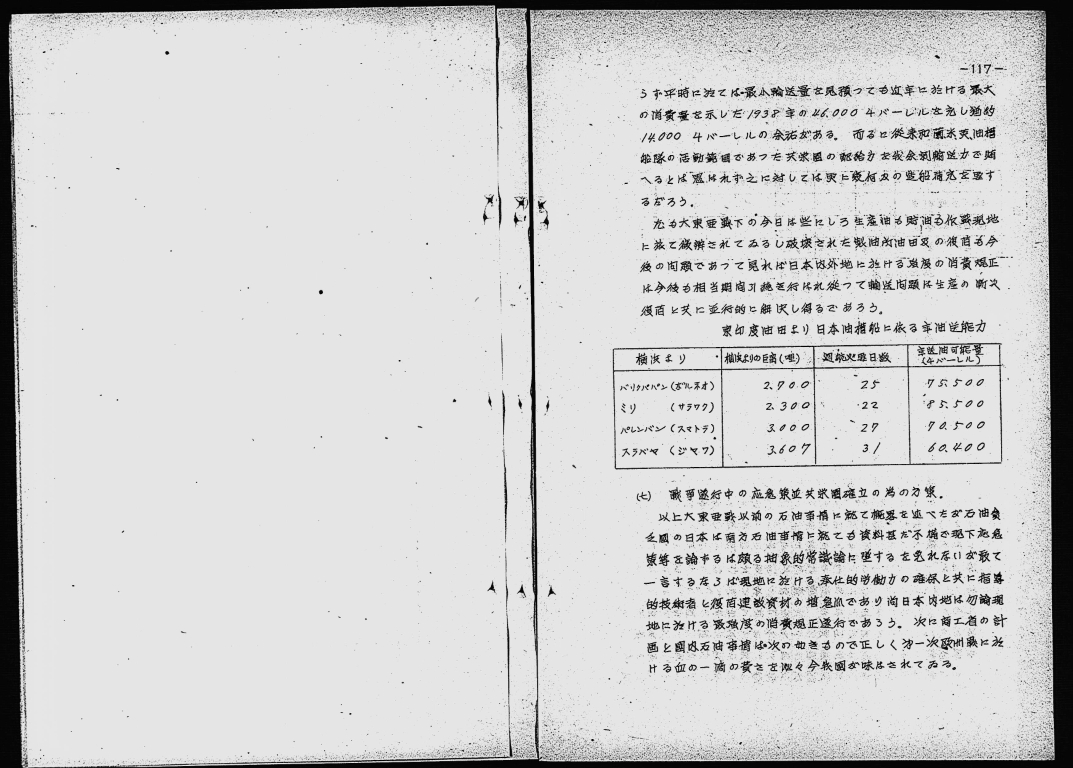 —117—
うず平時に於ては最小輸送量を見積つても近年に於ける最大
の消費量を示した1938年の46.000 4バーレルを充し猶約
14.000 4バーレルの余裕がある。而るに従来和蘭米英油槽
船隊の活動範囲であつた共栄圏の配給力を我余剰輸送力で賄
へるとは思はれず之に対しては更に幾何かの造船補充を要す
るだろう。
尤も大東亜戦下の今日は些にしろ生産油も貯油も依戦現地
に於て破壊された製油所油田の復旧も今
後の問題であつて見れば日本内外地に於ける強度の消費規正
は今後も相当期間継続行はれ従つて輸送問題は生産の漸次
復旧と共に並行的に解決し得るであろう。
東印度油田より日本油槽船に依る年油送能力
横浜より 横浜よりの距離(哩) 週航必要日数 年送油可能量(4バーレル)
バリクパパン(ボルネオ) 2.900 25 75.500
ミリ (サラワク) 2.300 22 85.500
パレンバン(スマトラ) 3.000 27 70.500
スラバヤ (ジヤワ) 3.607 31 60.400
(七) 戦争遂行中の応急策並共栄圏確立の為の方策。
以上大東亜戦以前の石油事情に就て概略を述べたが石油貧
乏国の日本は南方石油事情に就ても資料甚だ不備で現下応急
策等を論ずるは頗る抽象的常識論に堕するを免れないが敢て
一言するならば現地に於ける奉仕的労働力の確保と共に指導
的技術者と復旧建設資材の増急派であり尚日本内地は勿論現
地に於ける最強度の消費規正遂行であろう。次に商工省の計
画と国内石油事情は次の如きもので正しく第一次欧州戦に於
ける血の一滴の貴さを沁々今我国が味はされてゐる。